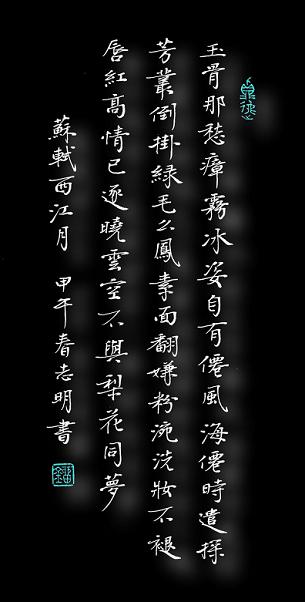 玉骨那愁瘴霧冰姿自有僊風海僊時遣探
芳叢倒掛緑毛么鳳素面翻嫌粉涴洗妝不褪
唇紅高情已逐曉雲空不與梨花同夢
蘇軾西江月 甲午春志明書